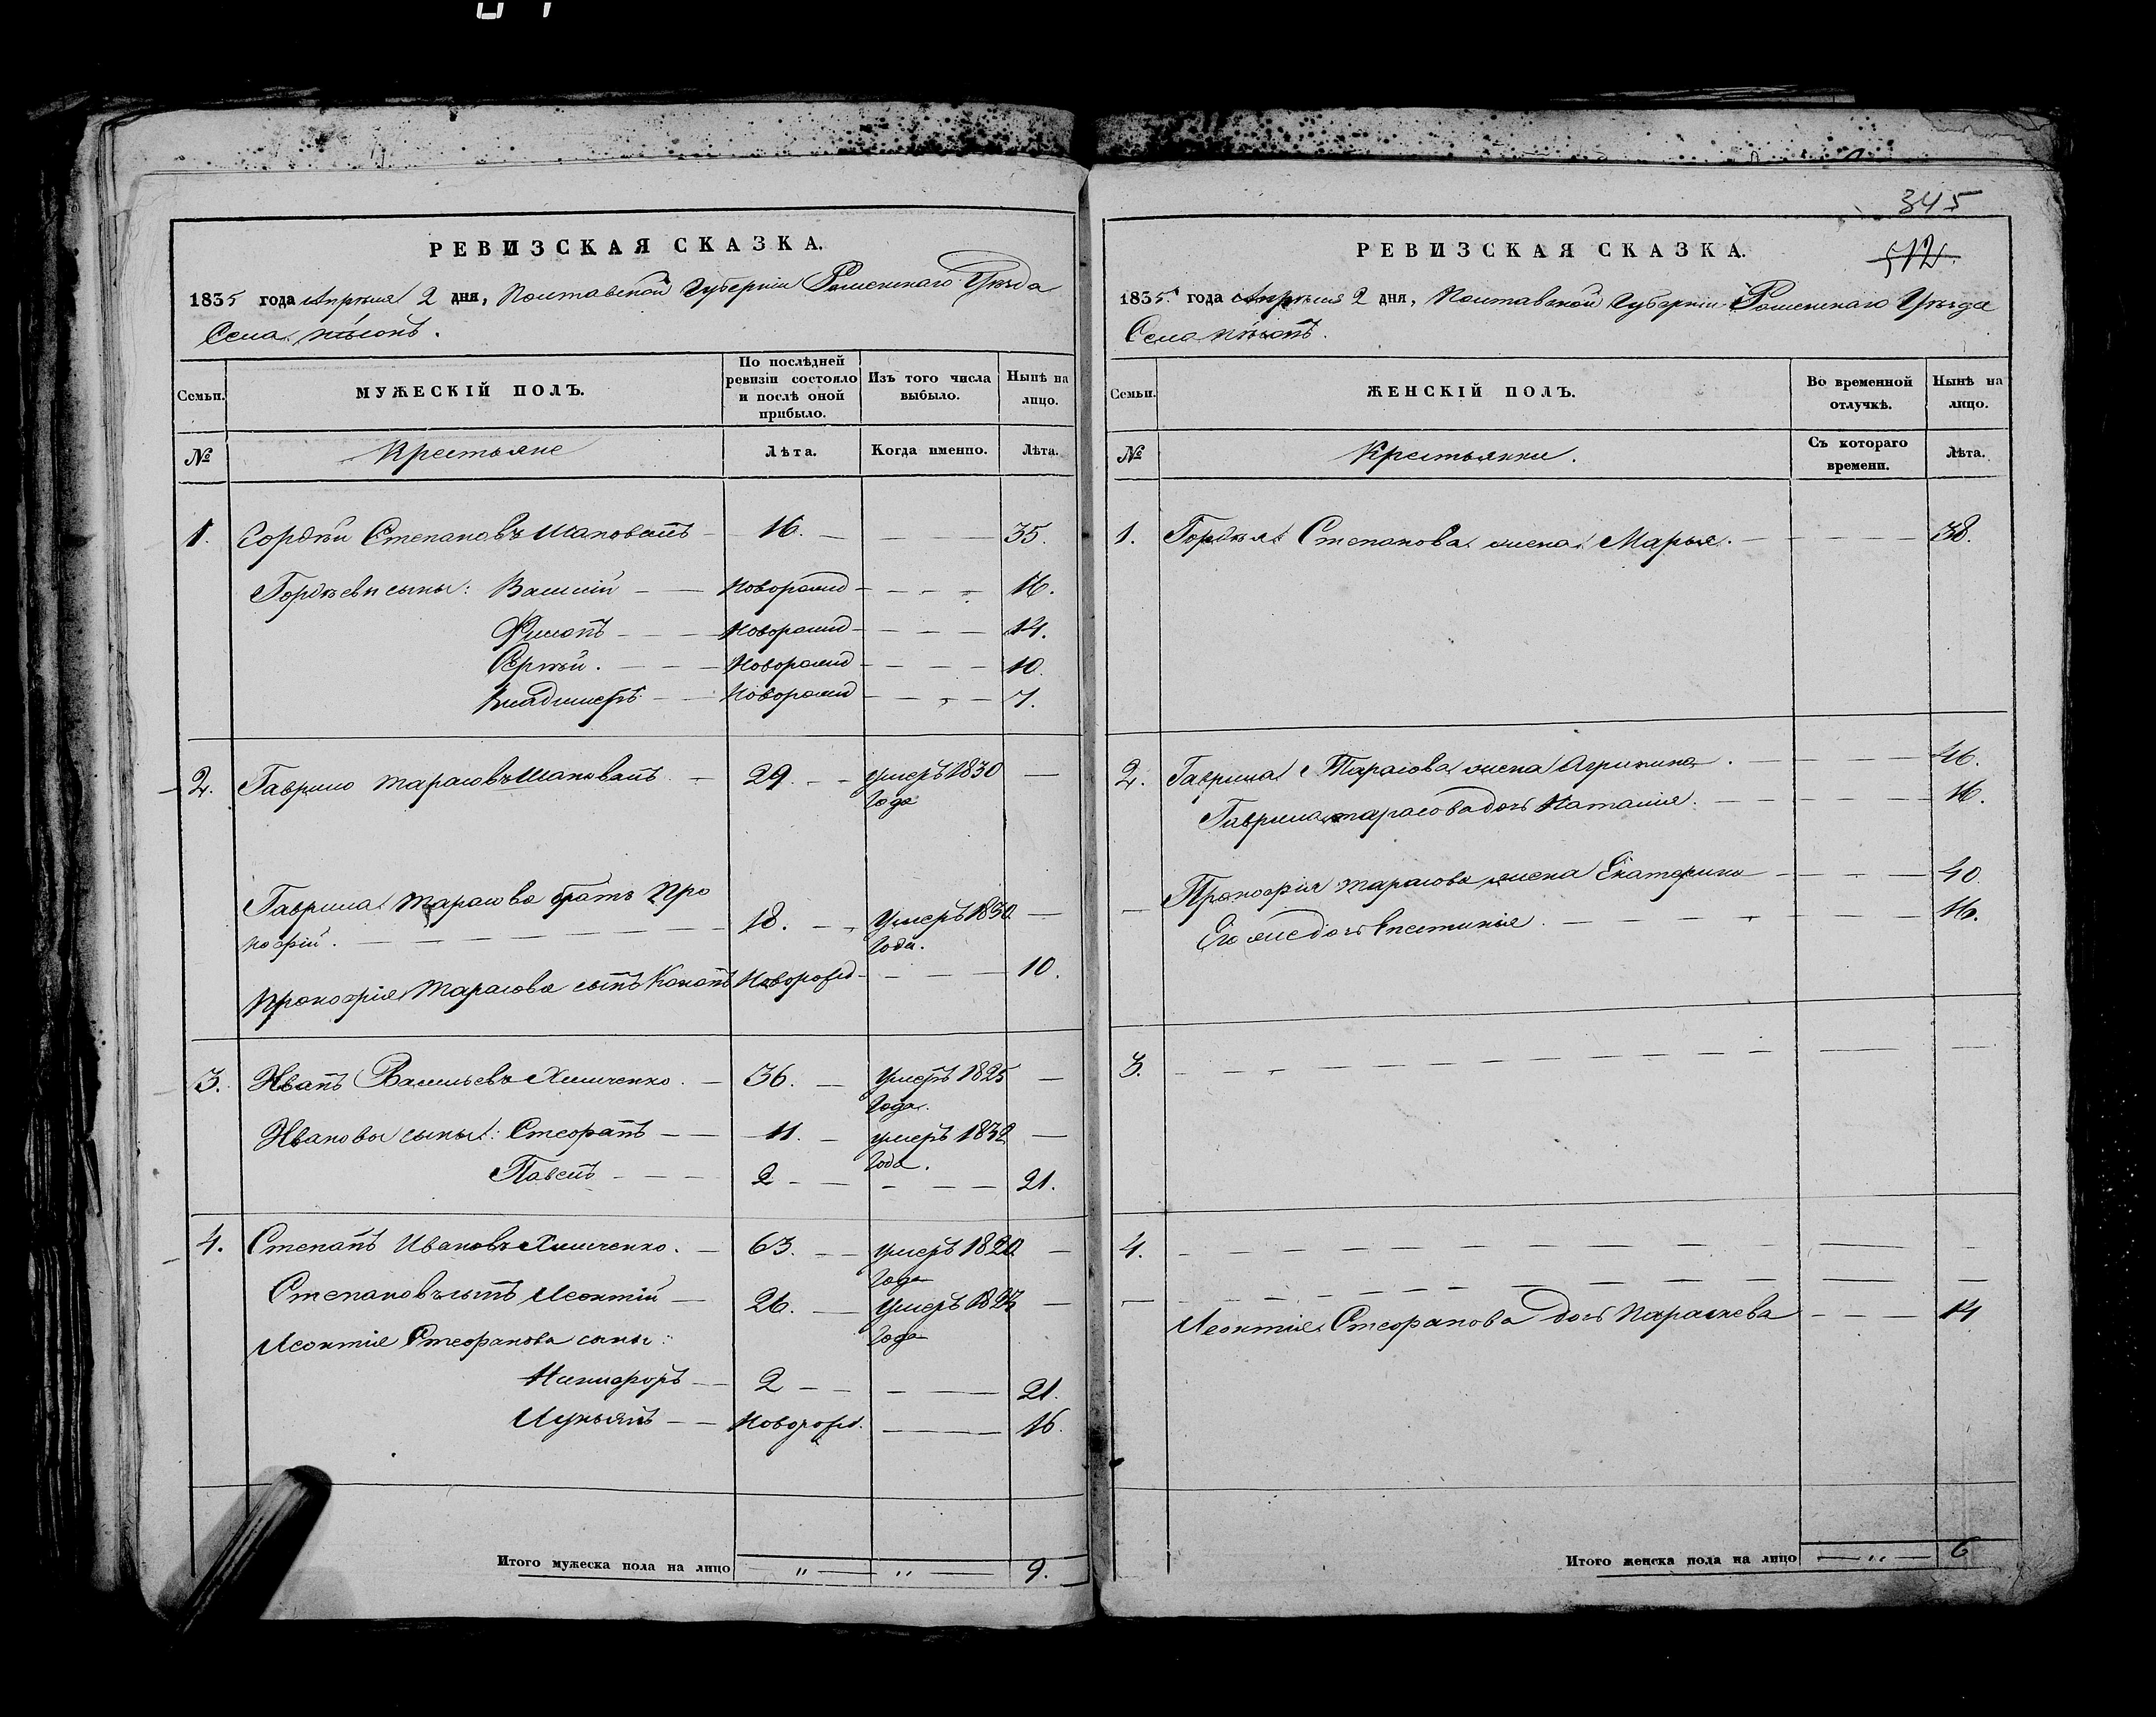 РЕВИЗСКАЯ СКАЗКА.
1835 года Апреля 2 дня, Полтавской Губерніи Роменскаго Уезда
Села
Семьи.
МУЖЕСКІЙ ПОЛЪ.
По послѣдней ревизіи состояло и послѣ оной прибыло.
Изъ того числа выбыло.
Нынѣ на лицо.
№
Крестьяне
Лѣта.
Когда именно.
Лѣта.
1. Гордѣй Степановъ Шаповалъ 16. 35.
Гордѣевы сыны: Василій Новорожд 16.
Филипъ Новорожд 14.
Сергѣй. Новорожд 10.
Владимеръ Новорожд 7.
2. Гаврило Тарасовъ Шаповалъ 29. умеръ 1830
Года
Гаврила Тарасова братъ Про
кофій. 18. Умеръ 1830
Года.
Прокофія Тарасова сынъ Новорожд 10.
3. Иванъ Васильевъ Химченко. 36. Умеръ 1825
Года.
Ивановы сыны: Стефанъ 11. умеръ 1832
Года.
Павелъ 2 21.
4. Степанъ Ивановъ Химченко. 63. умеръ 1820
Года
Степановъ сынъ Леонтій 26. Умеръ
Года
Леонтія Стефанова сыны:
Никифоръ 2 21.
Лукьянъ Новорожд. 16.
Итого мужеска пола на лицо " " 9.
345
512.
РЕВИЗСКАЯ СКАЗКА.
1835 года Апреля 2 дня, Полтавской Губерніи Роменскаго Уезда
Села
Семьи.
ЖЕНСКІЙ ПОЛЪ.
Во временной отлучкѣ.
Нынѣ на лицо.
№
Крестьянки.
Съ котораго времени.
Лѣта.
1. Гордѣя Степанова жена Марья. 38.
2. Гаврила Тарасова жена 46.
Гаврила Тарасова дочь Наталія. 16.
Прокофія Тарасова жена Екатерина 40
Его же дочь 16.
3.
4.
Леонтія Стефанова дочь Параскева 14
Итого женска пола на лицо " 6